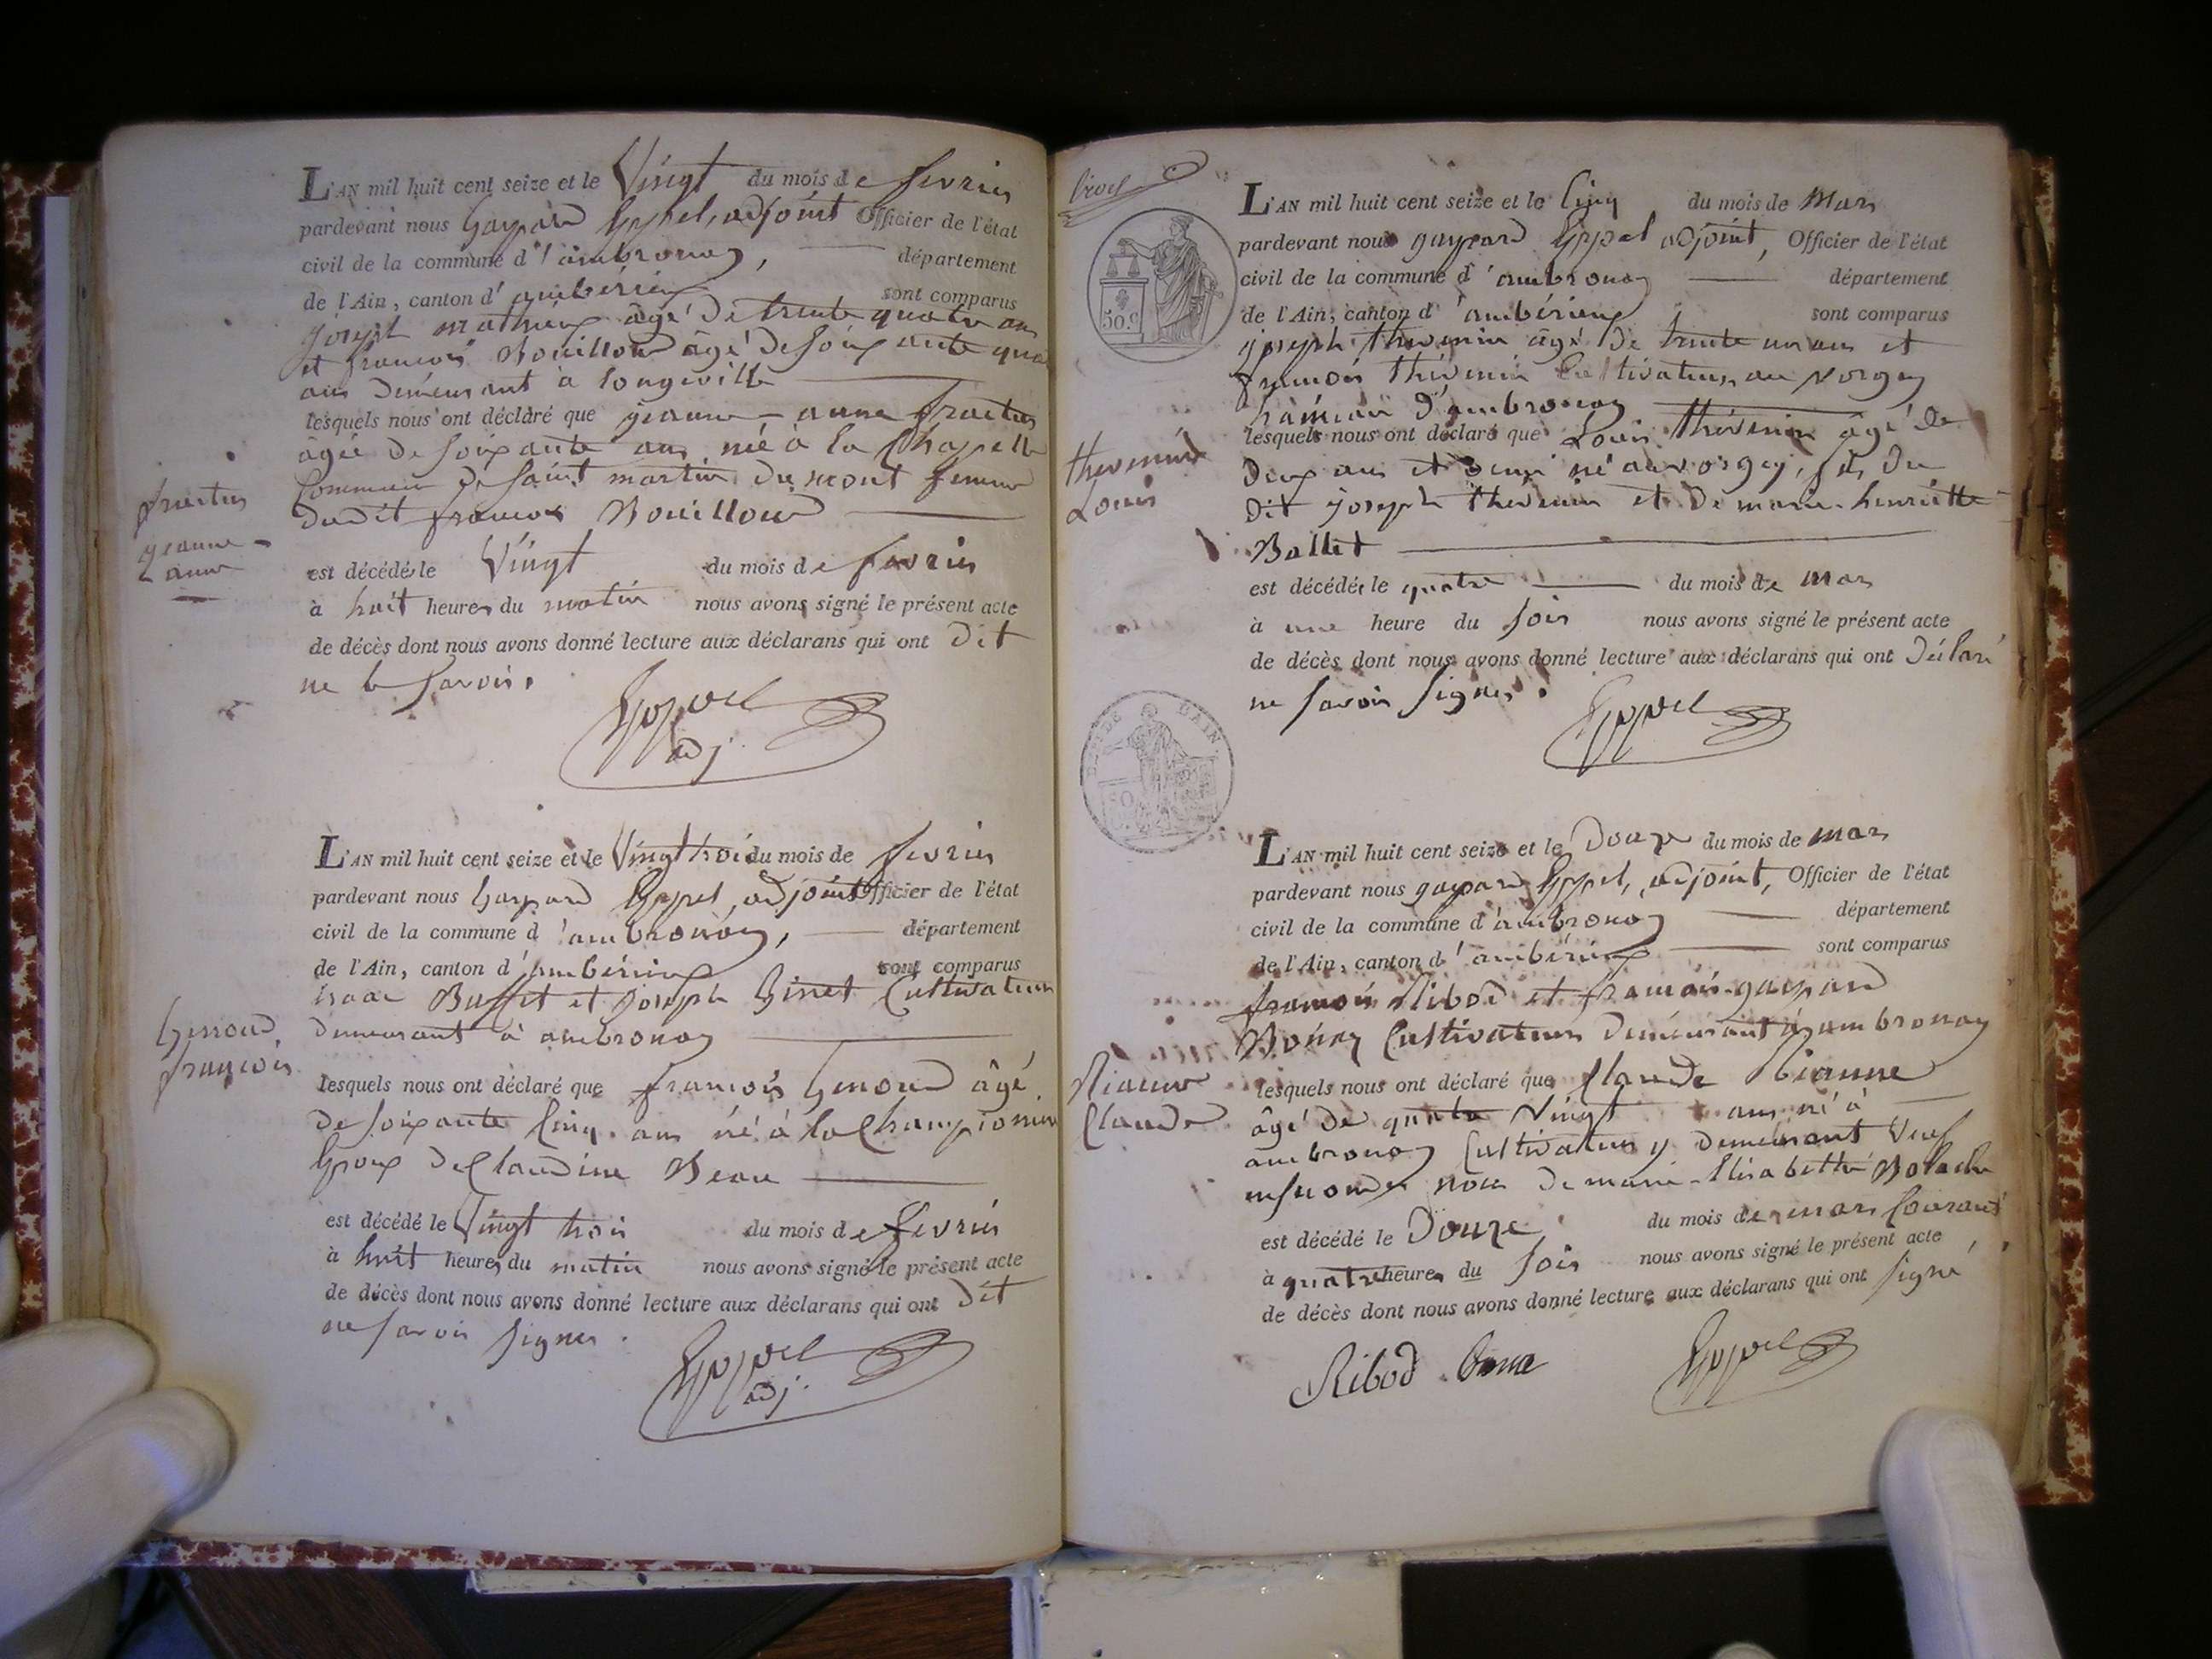 L'AN mil huit cent seize et le Vingt du mois de fevrier
pardevant nous Gaspard Eppel, adjoint Officier de l'état
civil de la commune d'ambronay, département
de l'Ain, canton d'ambérieux sont comparus
joseph mathieu âgé de trente quatre ans
et francois Bouilloud âgé de soix ante qua
ans demeurant à longeville
lesquels nous ont déclaré que jeanne-anne
âgée de soixante ans née à la Chapelle
Commune de saint martin du mont femme
dudit francois Bouilloud
jeanne-
anne
est décédée le Vingt du mois de fevrier
à huit heures du matin nous avons signé le présent acte
de décès dont nous avons donné lecture aux déclarans qui ont dit
ne le savoir.
Eppel
adj.
L'AN mil huit cent seize et le Vingt trois du mois de fevrier
pardevant nous Gaspard Eppel, adjoint Officier de l'état
civil de la commune d'ambronay, département
de l'Ain, canton d'ambérieux sont comparus
isaac Buffet et joseph Ginet Cultivateurs
demeurant à ambronay
Genoud
françois
lesquels nous ont déclaré que francois Genoud âgé
de soixante Cinq ans né à la
Epoux de Claudine Beau
est décédé le Vingt trois du mois de fevrier
à huit heures du matin nous avons signé le présent acte
de décès dont nous avons donné lecture aux déclarans qui ont dit
ne savoir signer.
Eppel
adj.
50.c
L'AN mil huit cent seize et le Cinq du mois de Mars
pardevant nous gaspard Eppel adjoint, Officier de l'état
civil de la commune d'ambronay département
de l'Ain, canton d'ambérieux sont comparus
joseph thevenin âgé de trente un ans et
francois thévenin Cultivateurs au vorgey
hameau d'ambronay
thevenin
Louis
lesquels nous ont déclaré que Louis thévenin âgé de
deux ans et demi né au vorgey, fils du
dit joseph thevenin et de marie-henriette
Ballet
est décédé le quatre du mois de mars
à une heure du soir nous avons signé le présent acte
de décès dont nous avons donné lecture aux déclarans qui ont déclaré
ne savoir signer.
Eppel
L'AN mil huit cent seize et le Douze du mois de mars
pardevant nous gaspard Eppel, adjoint, Officier de l'état
civil de la commune d'ambronay département
de l'Ain, canton d'ambérieux sont comparus
francois Ribod et francois-gaspard
Cultivateurs demeurant à ambronay
Claude
lesquels nous ont déclaré que Claude
âgé de quatre Vingt ans né à
ambronay Cultivateur y demeurant Veuf
en secondes noces de marie-Elisabeth
est décédé le Douze du mois de mars Courant
à quatre heures du soir nous avons signé le présent acte
de décès dont nous avons donné lecture aux déclarans qui ont signé
Ribod
Eppel